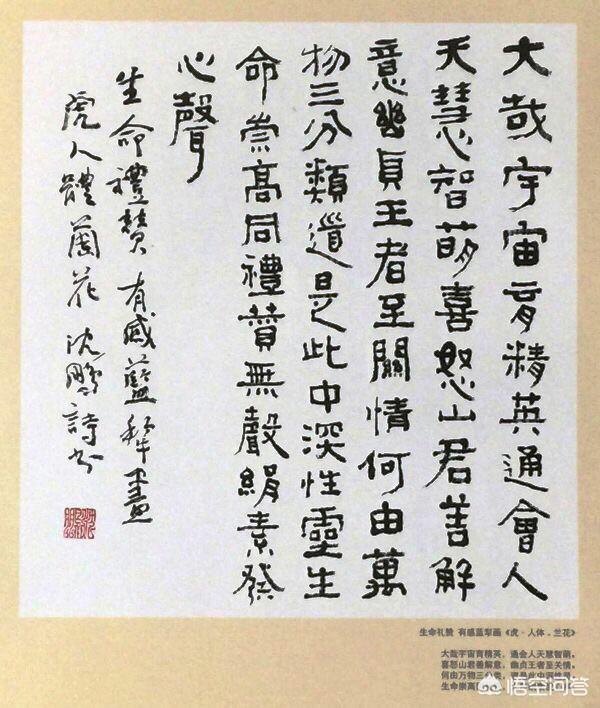 大哉宇宙育精英通會人
天慧智萌喜怒山君善解
意幽貞王者至關情何由萬
物三分類道是此中深性靈生
命崇高同禮贊無聲絹素發
心聲
生命禮贊 有感藍犁畫
虎人體蘭花 沈鵬詩書
生命礼赞 有感蓝犁画《虎·人体·兰花》
大哉宇宙育精英，通会人天慧智萌。
喜怒山君善解意，幽贞王者至关情。
何由万物三分类，
生命崇高
悟空问答